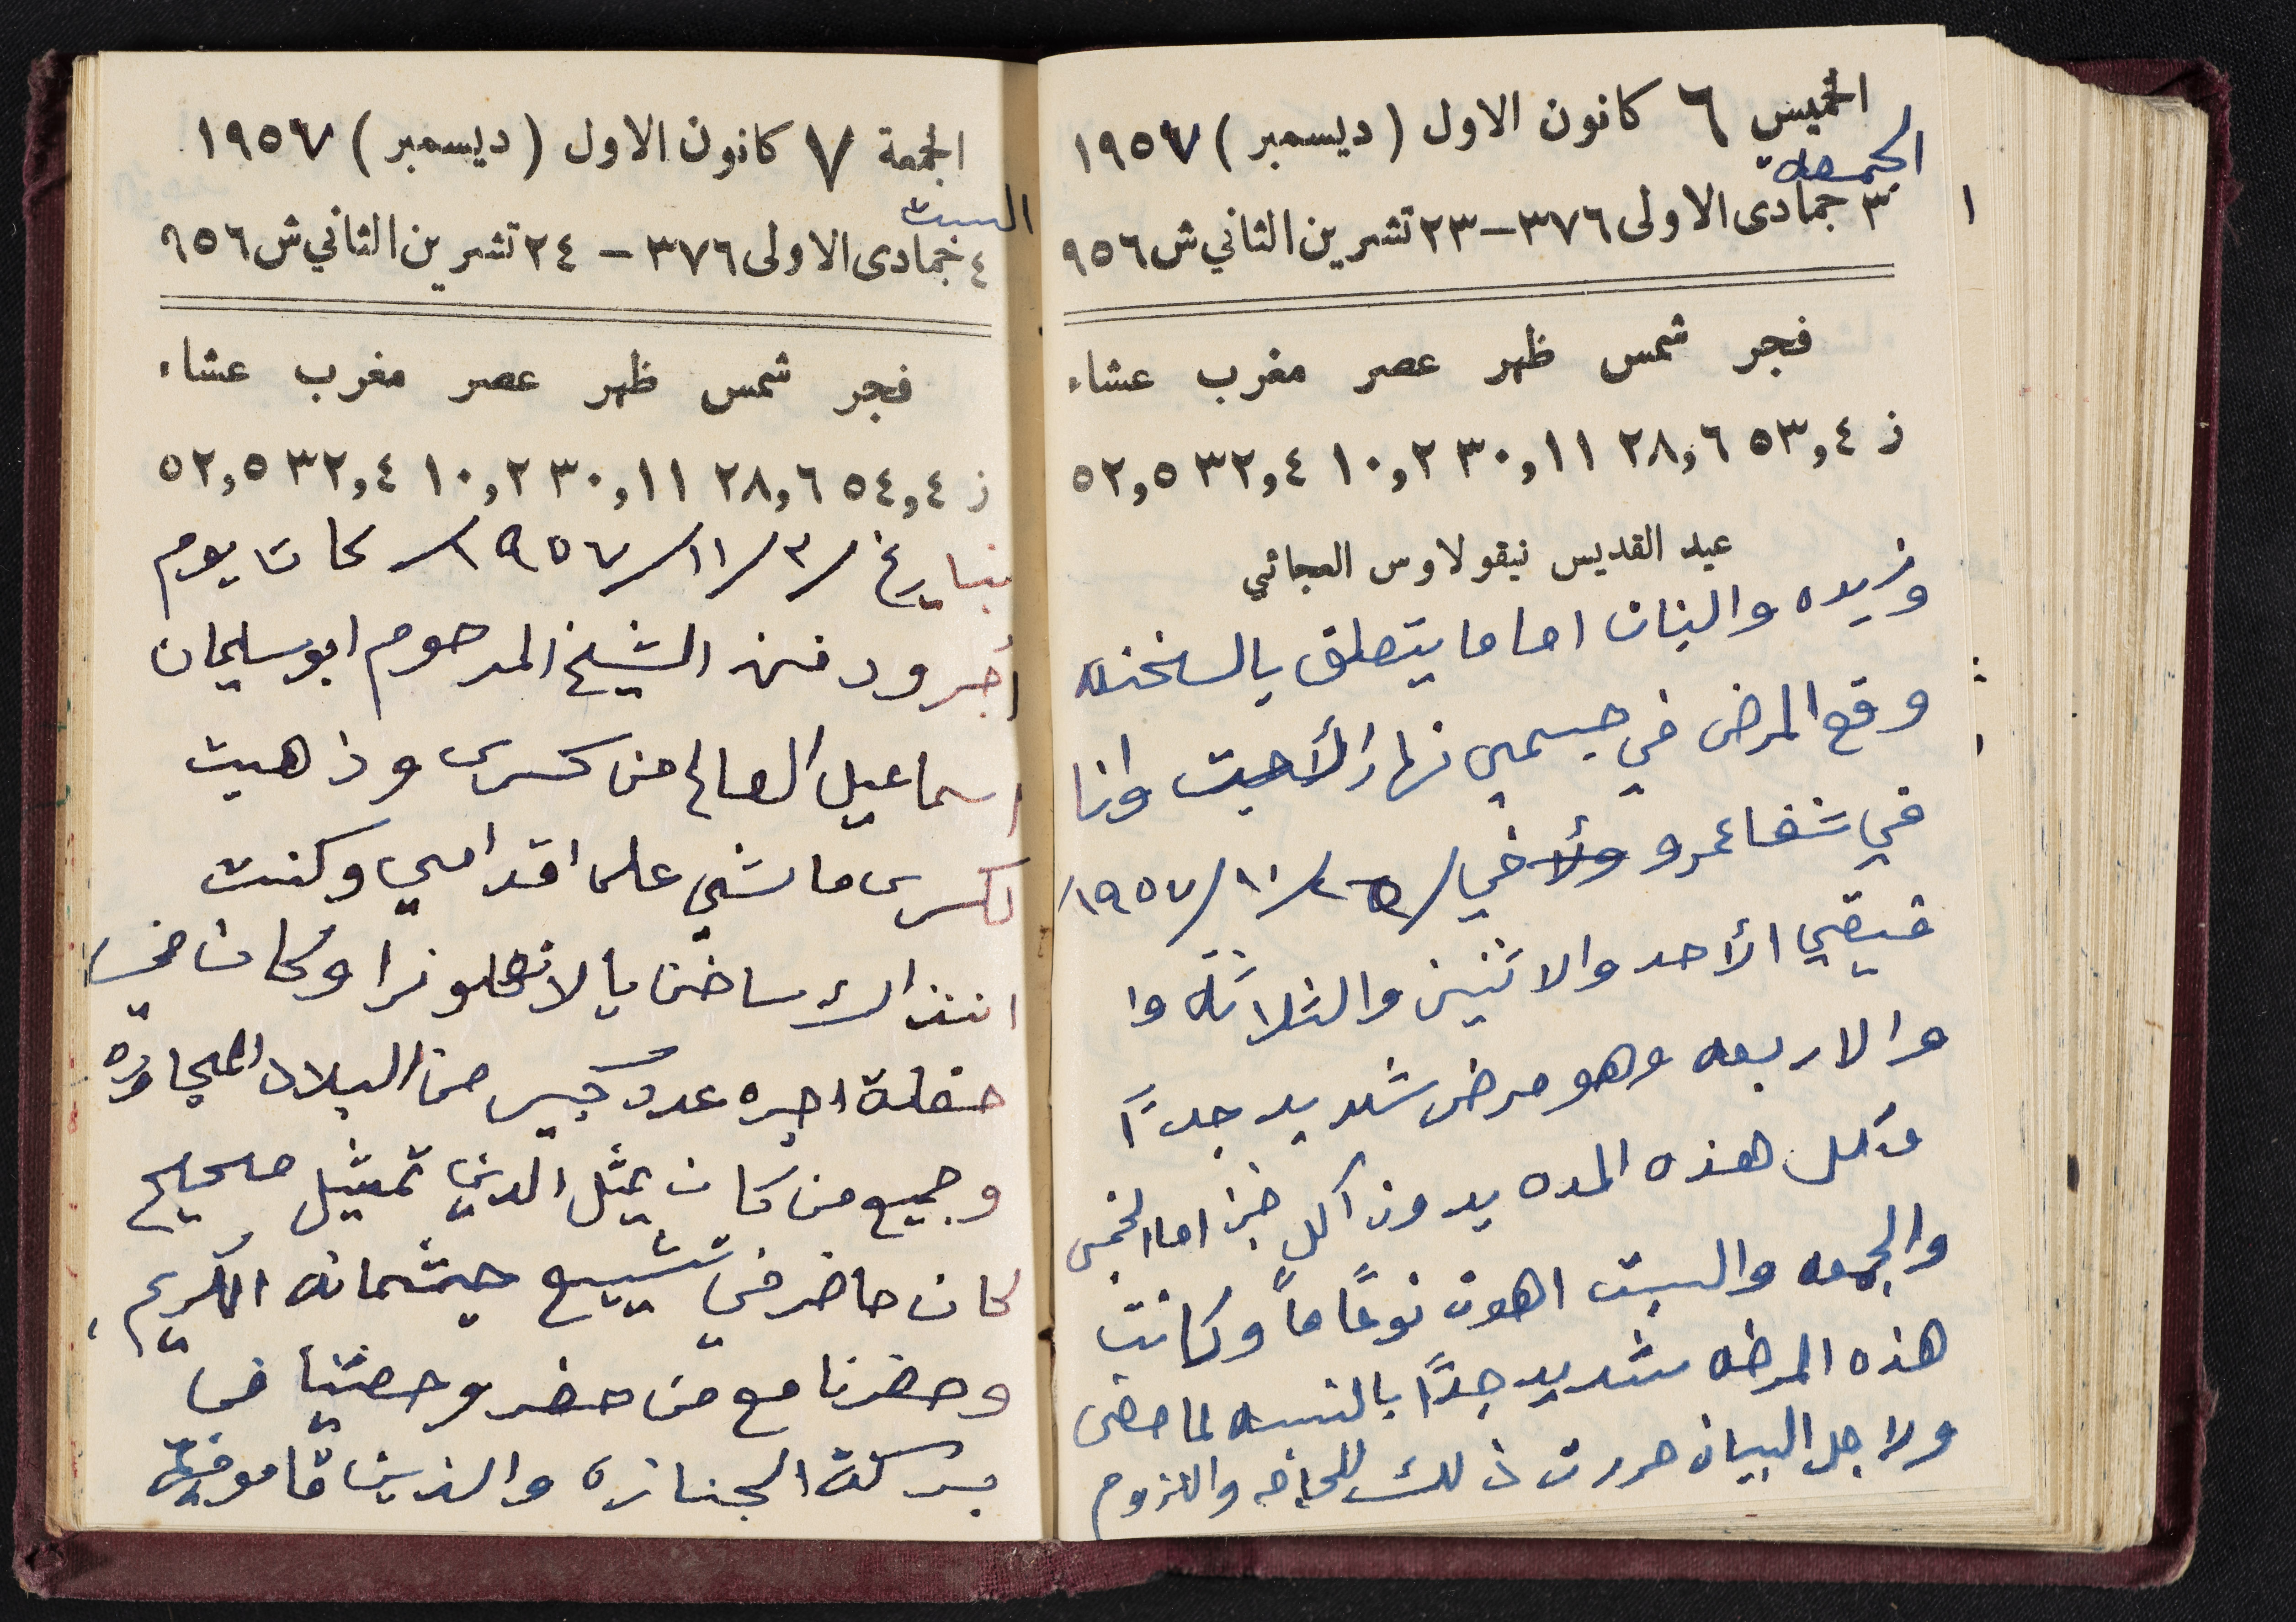 الخميس ٦ كانون الاول (ديسمبر) ١٩٥٧
الجمعه
٣ جمادى الاولى ٣٧٦ – ٢٣ تشرين الثاني ش ٩٥٦
فجر شمس ظهر عصر مغرب عشاء
ز ٥٣,٤ ٢٨,٦ ٣٠,١١ ١٠,٢ ٣٢,٤ ٥٢,٥
عيد القديس نيقولاوس العجائبي
وزيده والبنان اما ما يتعلق بالسخنه
وقع المرض في جسمي نهار الأحد وانا
في شفاعمرو في / ١٠ / ١٩٥٧/
فبقي الأحد والاثنين والثلاثه وا
والاربعه وهو مرض شديد جدًا
وكل هذه المده بدون اكل خبز اما الخمس
والجمعه والسبت اهون نوعًا ماً وكانت
هذه المرضه شديد جدًا بالنسبه لما مضى
ولاجل البيان حررت ذلك للحاجه واللزوم
الجمعة ٧ كانون الاول (ديسمبر) ١٩٥٧
السبت
٤ جمادى الاولى ٣٧٦ – ٢٤ تشرين الثاني ش ٩٥٦
فجر شمس ظهر عصر مغرب عشاء
ز ٥٤,٤ ٢٨,٦ ٣٠,١١ ١٠,٢ ٣٢,٤ ٥٢,٥
بتاريخ /٣/١١/١٩٥٧/ كان يوم
أجر ودفن الشيخ المرحوم ابو سليمان
اسماعيل العالم من كسرى وذهبت
لكسرى ماشي على اقدامي وكنت
انذاك ساخن بالانفلونزا وكان في
حفلة اجره عدد كبير من البلاد المجاوره
وجميع من كان يمثل الدين تمثيل صحيح
كان حاضر في تشييع جثمانه الكريم،
وحضرنا مع من حضر وحصتنا في
بركة الجنازه والذين قامو في